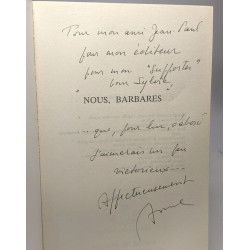 Pour mon ami Jean-Paul
pour mon éditeur
pour mon "supporter"
"NOUS, BARBARES"
que, pour lui, d'abord
J'aimerais un peu
victorieux...
Affectueusement